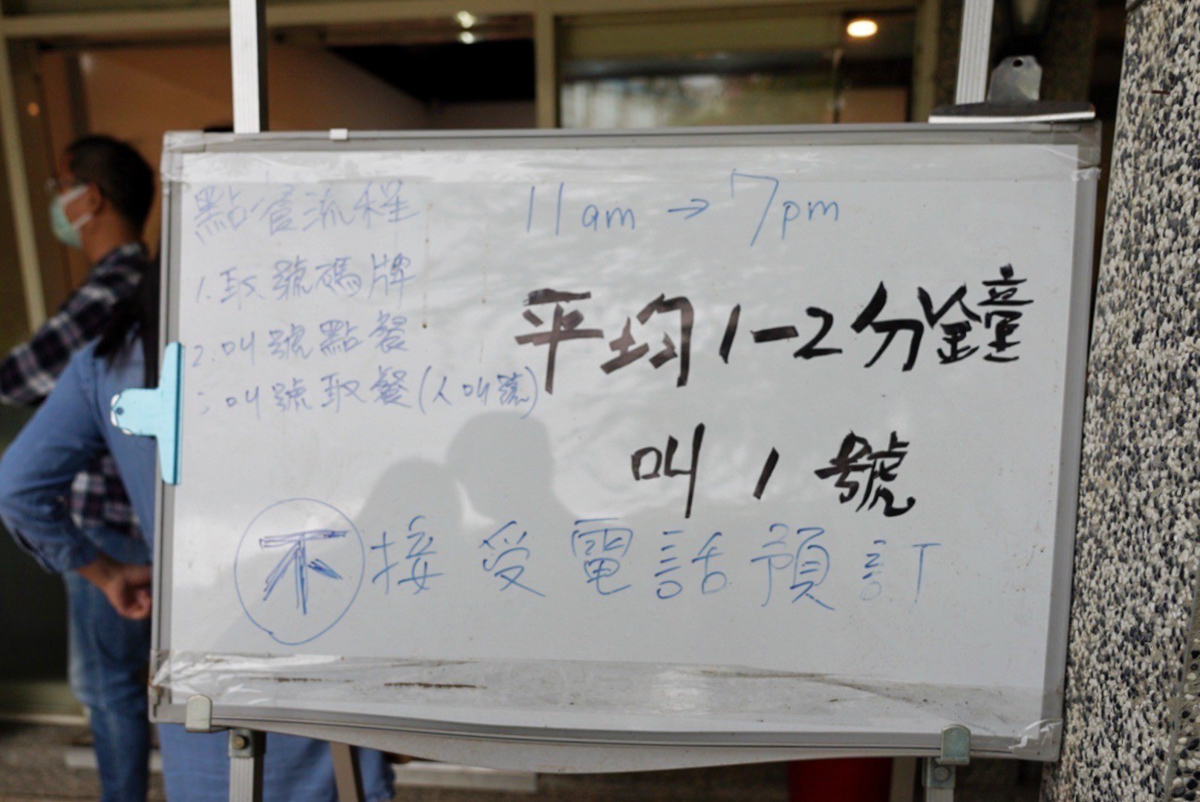 點餐流程
1.取號碼牌
2.叫號點餐
叫號取餐(人叫號)
11am → 7pm
平均1-2分鐘
叫1號
不接受電話預訂